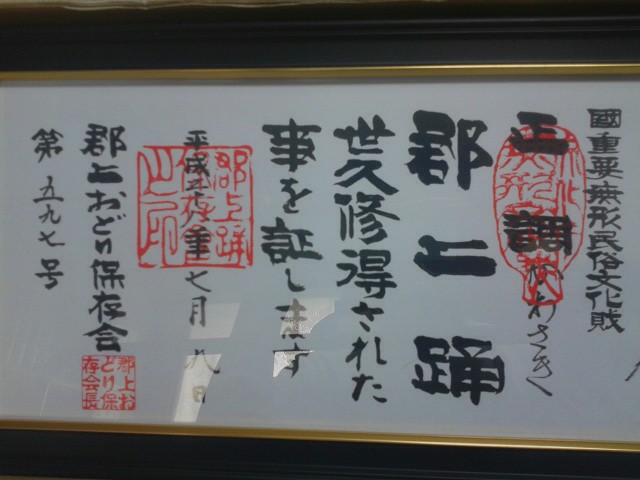 國重要無形民俗文化財
正調
かわさき
郡上踊
世久修得された
事を証します
平成 年七月 八日
郡上おどり保存会
第五九七号
郡上踊
保存会
之印
郡上お
どり保
存会長